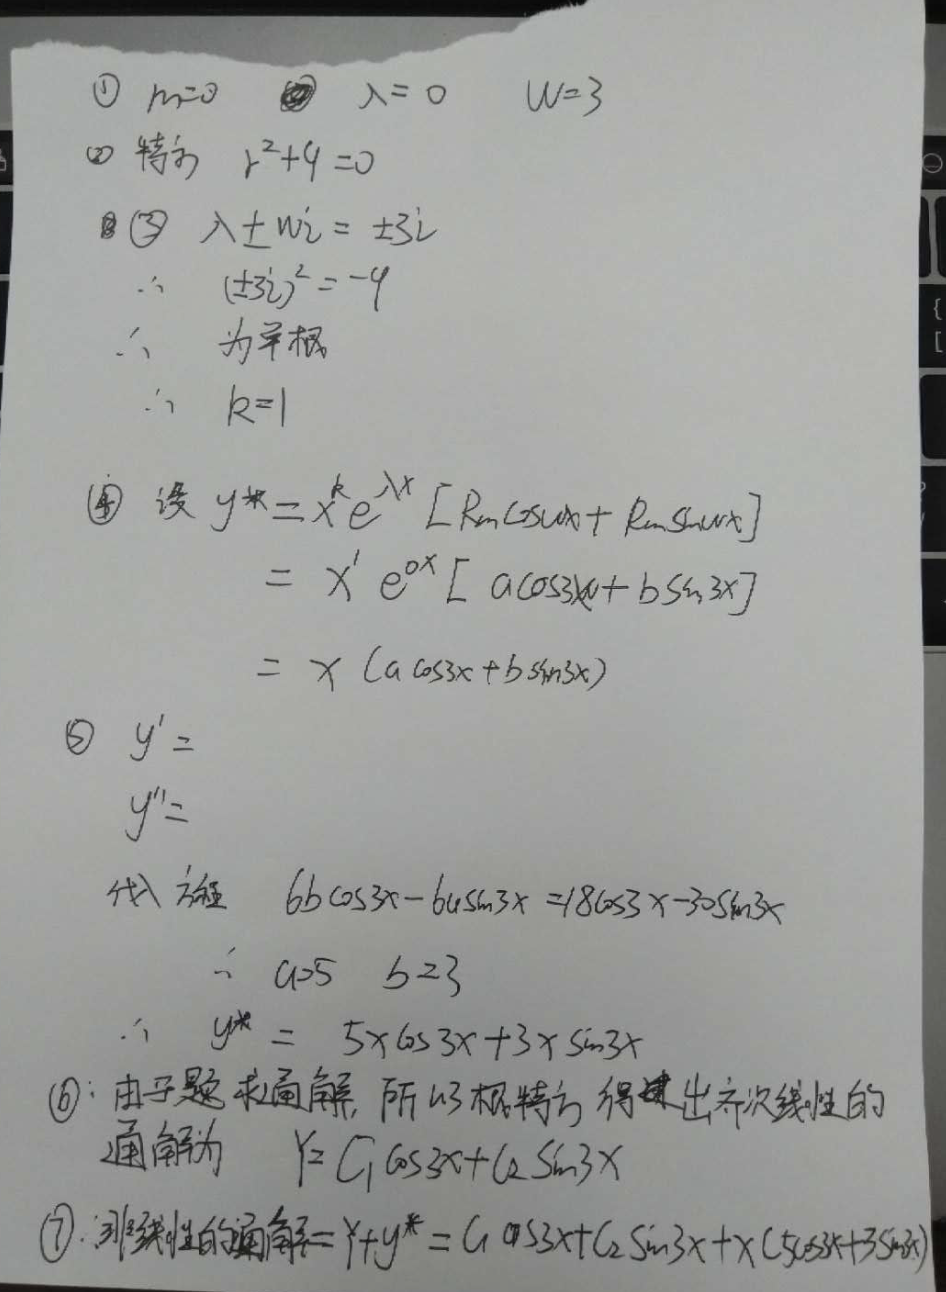 ① m=0 λ=0 W=3
② 特方 r²+9=0
③ λ±Wi = ±3i
∴ (±3i)² = -9
∴ 为单根
∴ k=1
④ 设 y* = x^k e^{λx} [Rm cos wx + Rm sin wx]
= x' e^{0x} [a cos3x + b sin3x]
= x (a cos3x + b sin3x)
⑤ y' =
y'' =
代入方程 6b cos3x - 6a sin3x = 18cos3x - 30sin3x
∴ a=5 b=3
∴ y* = 5x cos3x + 3x sin3x
⑥: 由于题求通解, 所以根特方得出齐次线性的
通解为 Y = C₁ cos3x + C₂ sin3x
⑦: 线性的通解 = Y+y* = C₁ cos3x + C₂ sin3x + x(5cos3x+3sin3x)